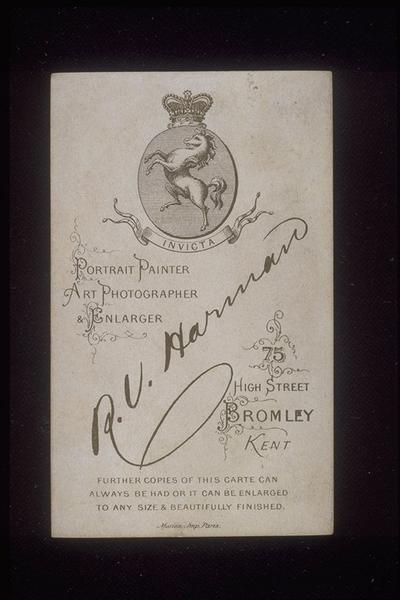 INVICTA
PORTRAIT PAINTER
ART PHOTOGRAPHER
& ENLARGER
R. V. Harman
75
HIGH STREET
BROMLEY
KENT
FURTHER COPIES OF THIS CARTE CAN
ALWAYS BE HAD OR IT CAN BE ENLARGED
TO ANY SIZE & BEAUTIFULLY FINISHED.
Marion, Imp. Paris.